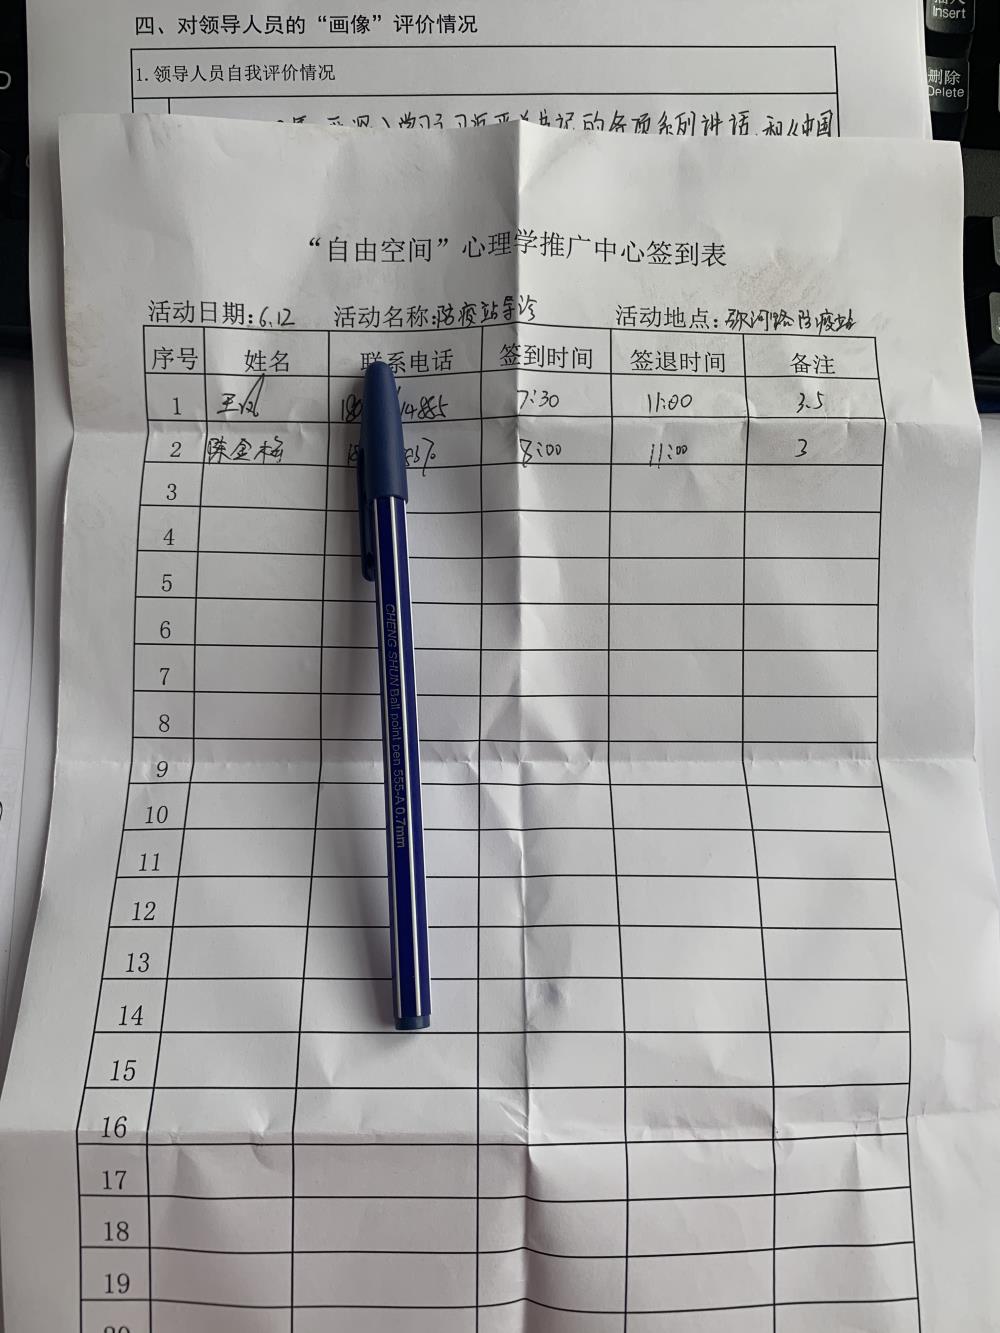 插入
Insert
删除
Delete
四、对领导人员的“画像”评价情况
1.领导人员自我评价情况
学习习近平总书记的各项系列讲话,和《中国
“自由空间”心理学推广中心签到表
活动日期:6.12 活动名称:防疫站导诊 活动地点:弥河路防疫站
序号 姓名 联系电话 签到时间 签退时间 备注
1 王 180 14885 7:30 11:00 3.5
2 陈金梅 8:00 11:00 3
3
4
5
6
7
8
9
10
11
12
13
14
15
16
17
18
19
20
CHENG SHUN Ball point pen 555-A 0.7mm